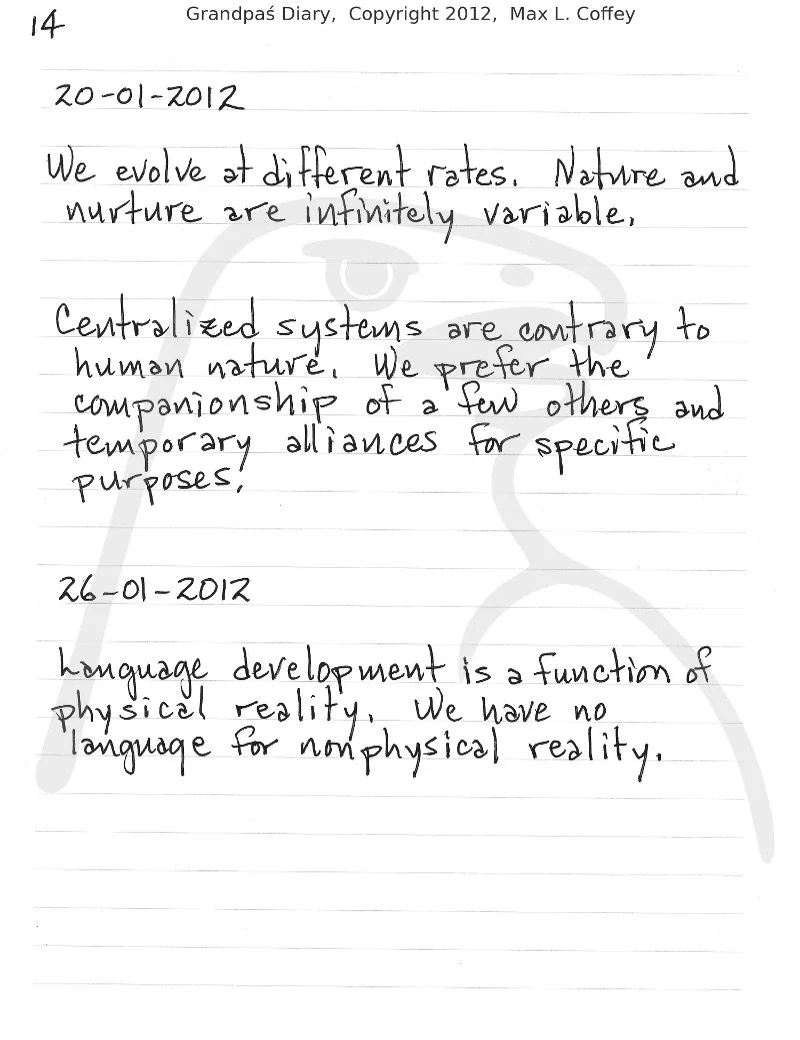 Grandpaś Diary, Copyright 2012, Max L. Coffey
14
20-01-2012
We evolve at different rates. Nature and
nurture are infinitely variable.
Centralized systems are contrary to
human nature. We prefer the
companionship of a few others and
temporary alliances for specific
purposes.
26-01-2012
Language development is a function of
physical reality. We have no
language for nonphysical reality.